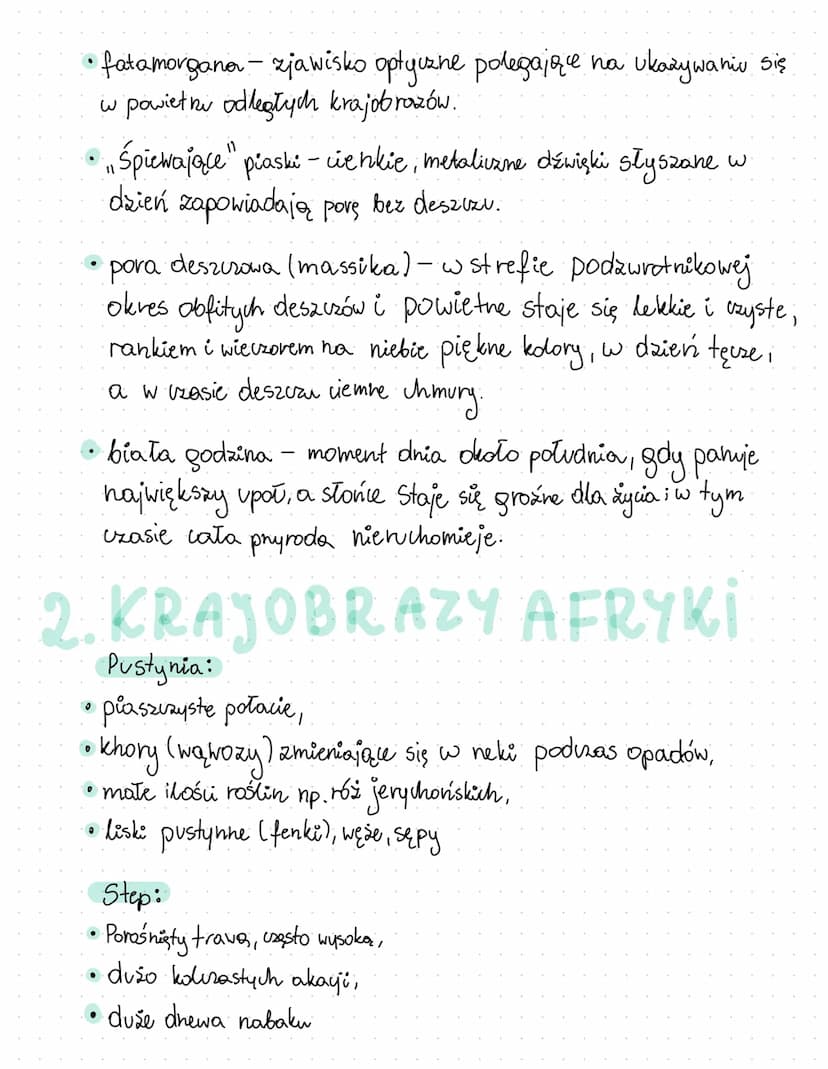 • fatamorgana – zjawisko optyczne polegające na ukazywaniu się
w powietrzu odległych krajobrazów.
• „Śpiewające" piaski – cienkie, metaliczne dźwięki słyszane w
dzień zapowiadają porę bez deszczu.
• pora deszczowa (massika) – w strefie podzwrotnikowej
okres obfitych deszczów i powietrze staje się lekkie i czyste,
rankiem i wieczorem na niebie piękne kolory, w dzień tęcze,
a w czasie deszczu ciemne chmury.
• biała godzina – moment dnia około południa, gdy panuje
największy upał, a słońce staje się groźne dla życia i w tym
czasie cała przyroda nieruchomieje.
2. KRAJOBRAZY AFRYKI
Pustynia:
• piaszczyste połacie,
• khory (wąwozy) zmieniające się w rzeki podczas opadów,
• małe ilości roślin np. róż jerychońskich,
• liski pustynne (fenki), węże, sępy
Step:
• Porośnięty trawą, często wysoką,
• dużo kolczastych akacji,
• duże drzewa nabaku